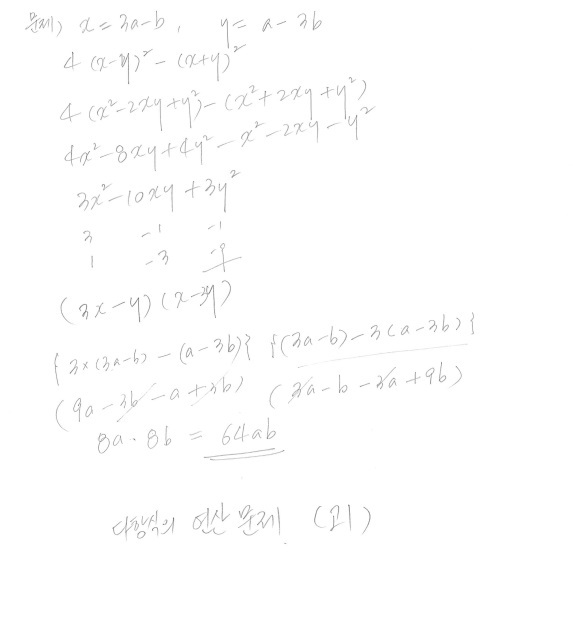 문제) x = 3a-b, y = a-3b
4(x-y)² - (x+y)²
4(x²-2xy+y²)-(x²+2xy+y²)
4x²-8xy+4y²-x²-2xy-y²
3x²-10xy+3y²
3 -1 -1
1 -3 -9
(3x-y)(x-3y)
{3×(3a-b)-(a-3b)} {(3a-b)-3(a-3b)}
(9a-3b-a+3b) (3a-b-3a+9b)
8a·8b = 64ab
다항식의 연산 문제 (고1)